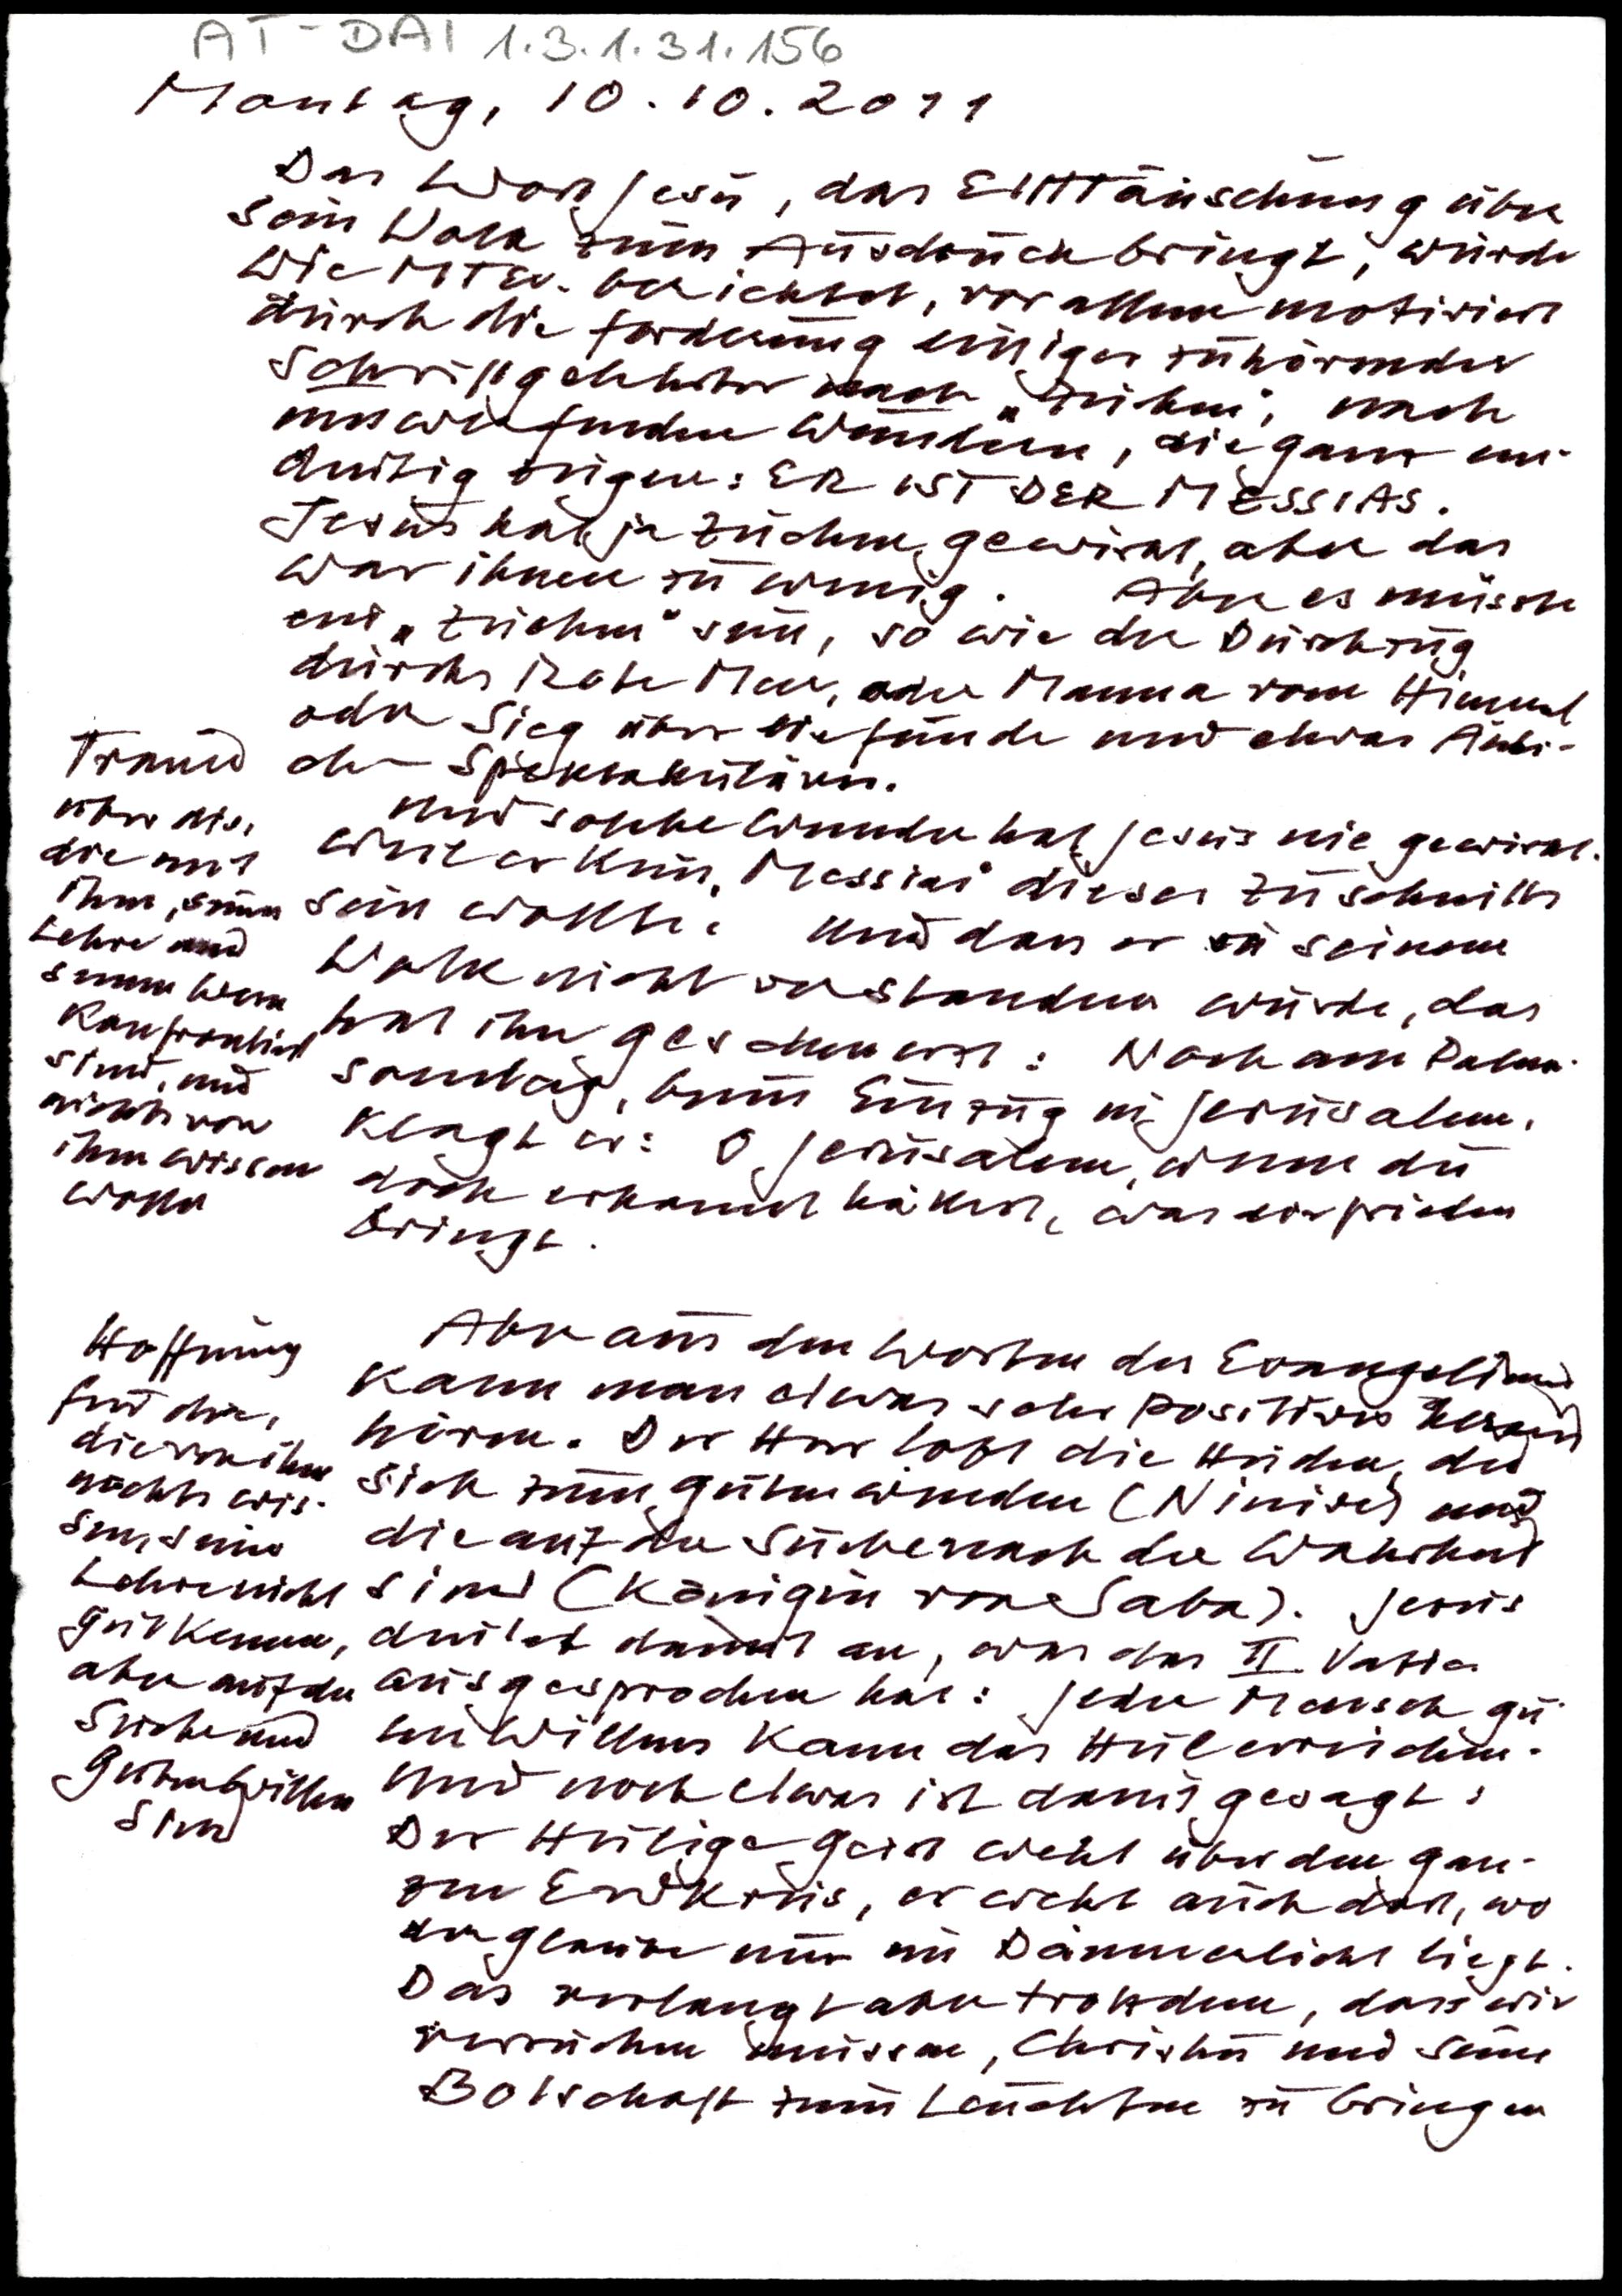 AT-DAI 1.3.1.31.156
Montag, 10.10.2011
Das Wort Jesu, das Enttäuschung über
sein Volk zum Ausdruck bringt, wurde
wie MtEv. berichtet, vor allem motiviert
durch die Forderung einiger zuhörender
Schriftgelehrter nach „Zeichen", nach
umwerfenden Wundern, die ganz ein-
deutig zeigen: ER IST DER MESSIAS.
Jesus hat ja Zeichen gewirkt, aber das
war ihnen zu wenig. Aber es müsste
ein „Zeichen" sein, so wie der Durchzug
durchs Rote Meer, oder Manna vom Himmel
oder Sieg über die Feinde und etwas
der Spektakulären.
Und solche Wunder hat Jesus nie gewirkt.
weil er kein „Messias" dieses Zuschnitts
sein wollte. Und dass er in seinem
Volk nicht verstanden wurde, das
hat ihn geschmerzt: Noch am Palm-
sonntag, beim Einzug in Jerusalem,
klagt er: O Jerusalem, wenn du
doch erkannt hättest, was dir Frieden
bringt.
Trauer
über die,
die mit
ihm, seiner
Lehre und
seinem Werk
konfrontiert
sind, und
nichts von
ihm wissen
wollen
Aber aus den Worten des Evangeliums
kann man etwas sehr Positives heraus
hören. Der Herr lobt die Heiden, die
sich zum Guten wenden (Ninive) und
die auf der Suche nach der Wahrheit
sind (Königin von Saba). Jesus
deutet damit an, was das II. Vatic
ausgesprochen hat: Jeder Mensch gu-
ten Willens kann das Heil erreichen.
Und noch etwas ist damit gesagt:
Der Heilige Geist weht über den gan-
zen Erdkreis, er weht auch dort, wo
der Glaube nur im Dämmerlicht liegt.
Das verlangt aber trotzdem, dass wir
versuchen müssen, Christus und seine
Botschaft zum Leuchten zu bringen
Hoffnung
für die,
die von ihm
nichts wis-
sen, seine
Lehre nicht
gut kennen,
aber auf der
Suche und
guten Willens
sind